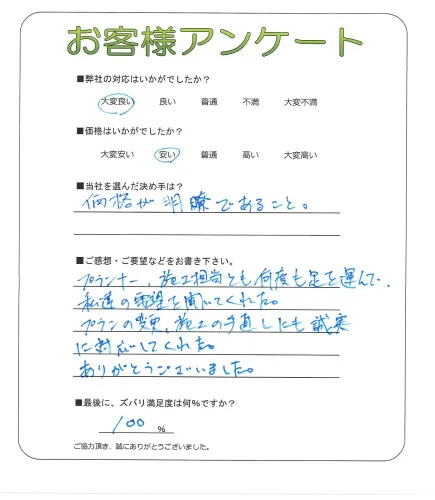 お客様アンケート
■弊社の対応はいかがでしたか?
大変良い 良い 普通 不満 大変不満
■価格はいかがでしたか?
大変安い 安い 普通 高い 大変高い
■当社を選んだ決め手は?
価格が明瞭であること。
■ご感想・ご要望などをお書き下さい。
プランナー、施工担当とも何度も足を運んで、
私達の要望を聞いてくれた。
プランの変更、施工の手直しにも誠実
に対応してくれた。
ありがとうございました。
■最後に、ズバリ満足度は何%ですか?
100 %
ご協力頂き、誠にありがとうございました。